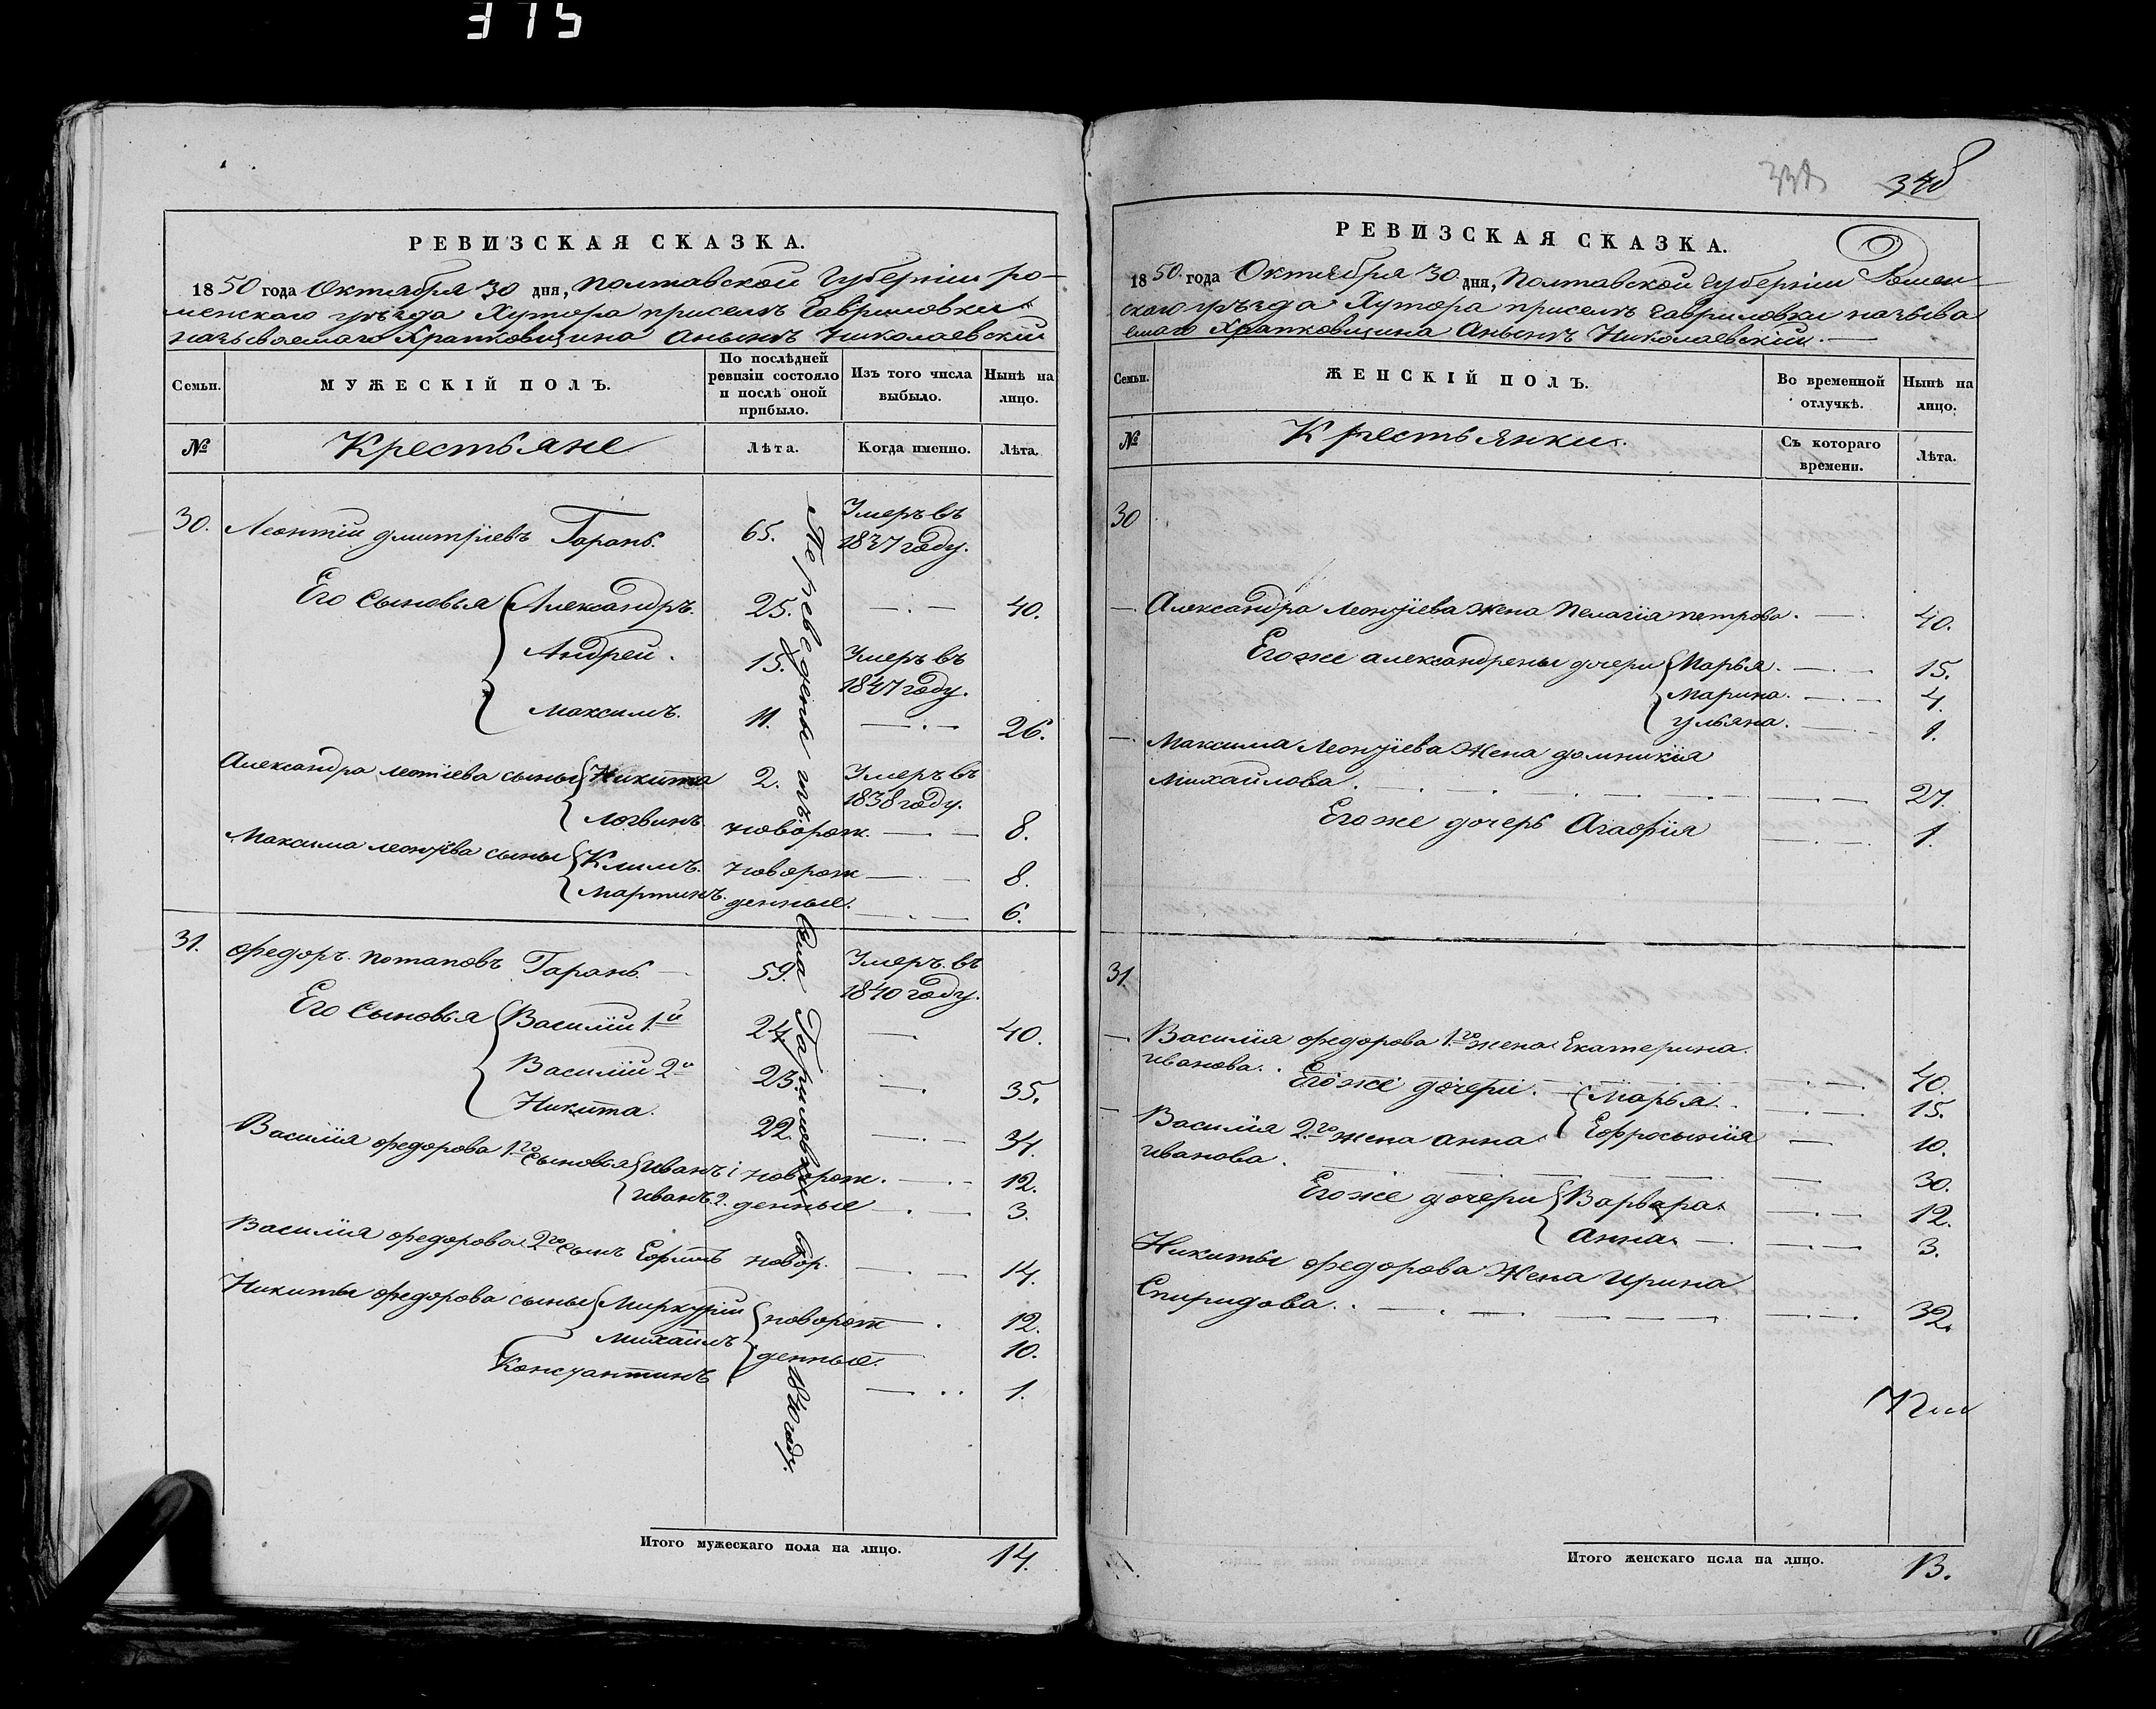 375
РЕВИЗСКАЯ СКАЗКА.
1850 года Октября 30 дня, Полтавской Губерніи ро-
менского уъзда Хутора приселъ Гавриловки
называемаго Храпковщина Аньинъ Николаевскій
Семьи.
МУЖЕСКІЙ ПОЛЪ.
По послѣдней ревизіи состояло и послѣ оной прибыло.
Изъ того числа выбыло.
Нынѣ на лицо.
№
Крестьяне
Лѣта.
Когда именно.
Лѣта.
30. Леонтій дмитріевъ Гарань. 65. Умеръ въ 1837 году.
Его Сыновья Александръ. 25. 40.
Андрей. 15. Умеръ въ 1847 году.
Максимъ. 11. 26.
Александра леотіева сыны Никита 2. Умеръ въ 1838 году.
Логвинъ. новорож. 8.
Максима леонтіева сыны Климъ. новорож 8.
Мартинъ. денные. 6.
31. Федоръ Потаповъ Гарань. 59. Умеръ въ 1840 году.
Его Сыновья Василій 1й 24 40.
Василій 2й 23. 35.
Никита. 22. 34.
Василія федорова 1го сыновья Иванъ 1 новорож. 12.
Иванъ 2. денные 3.
Василія федорова 2го сынъ Ефимъ новор. 14.
Никиты федорова сыны Миркурій новорож 12.
Михаилъ денные. 10.
Константинъ 1.
Переведены изъ села Гавриловки в 1840 году.
Итого мужескаго пола на лицо. 14.
338
348
РЕВИЗСКАЯ СКАЗКА.
1850. года Октября 30 дня, Полтавской губерніи Ромен-
ского уъзда Хутора приселъ Гавриловки называ
емаго Храпковщина Аньинъ Николаевскій.
Семьи.
ЖЕНСКІЙ ПОЛЪ.
Во временной отлучкѣ.
Нынѣ на лицо.
№
Крестьянки.
Съ котораго времени.
Лѣта.
30
Александра Леонтіева жена Пелагія петрова. 40.
Егоже александрены дочери Марья. 15.
Марина. 4.
Ульяна. 1.
Максима Леонтіева Жена домникія
Михайлова. 27.
Егоже дочерь Агафія 1.
31.
Василія федорова 1го жена Екатерина
иванова. 40.
Егоже дочери. Марья. 15.
Ефросинія 10.
Василія 2го жена анна
иванова. 30.
Егоже дочери Варвара 12.
Анна 3.
Никиты федорова Жена Ирина
Спиридова. 32.
Итого женскаго пола на лицо. 13.